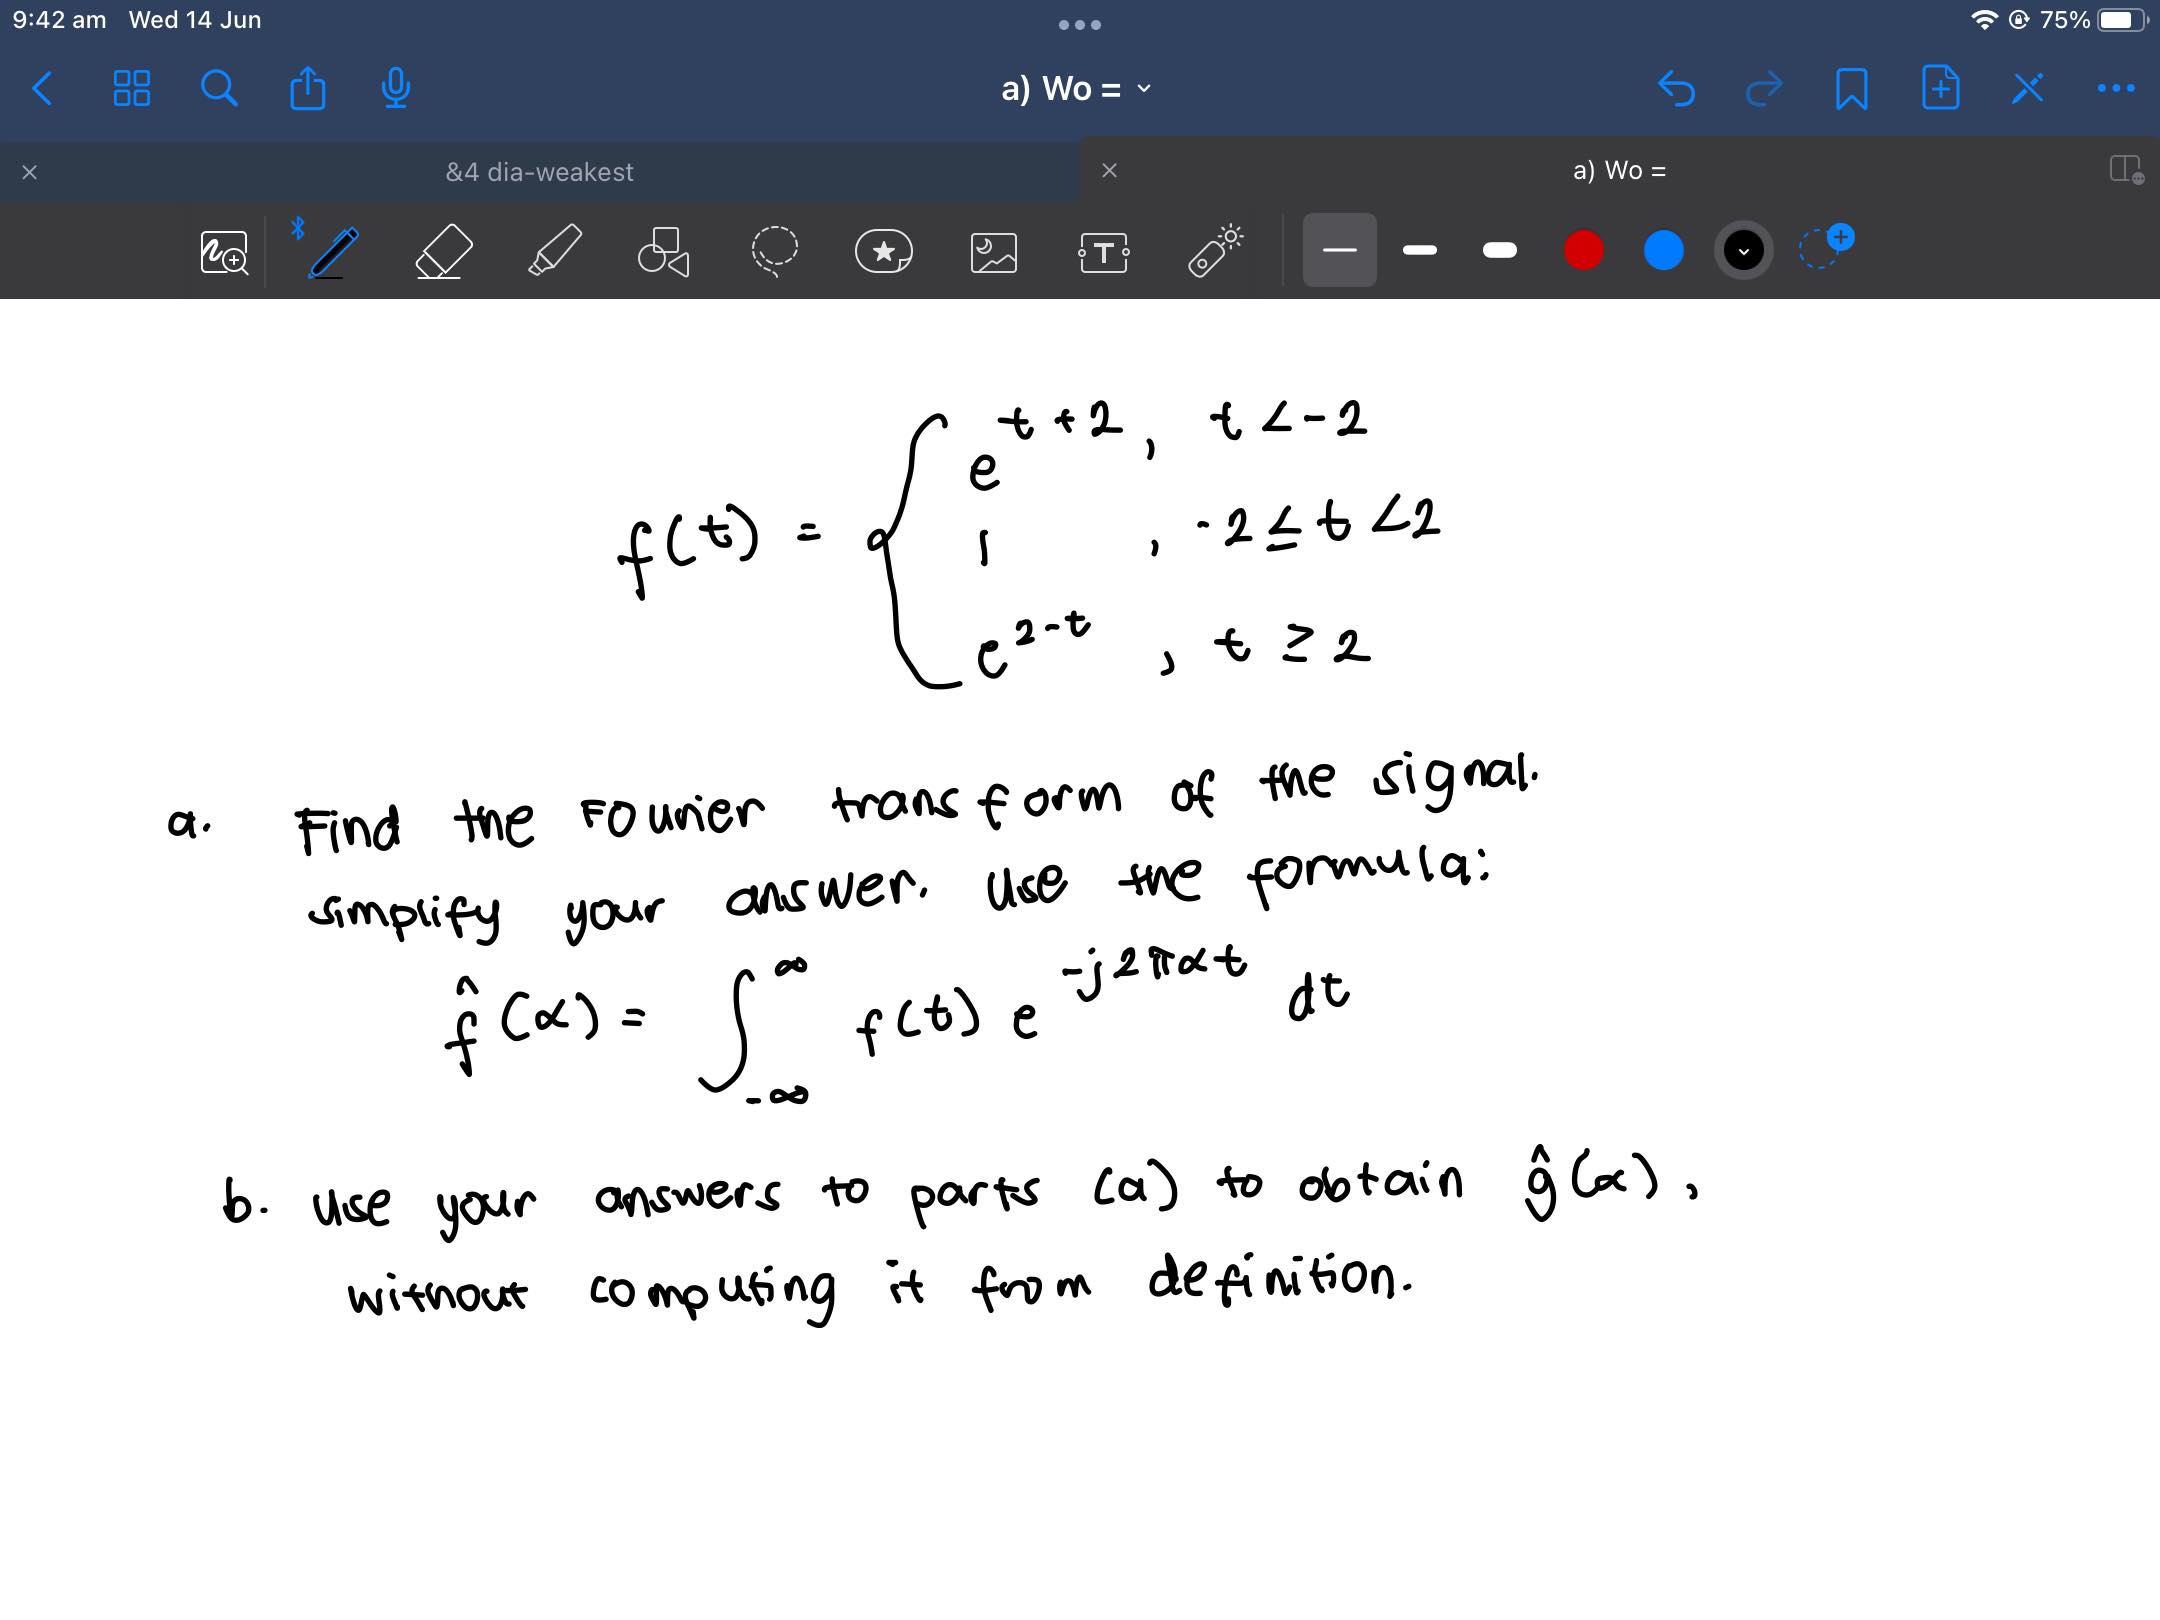 9:42 am Wed 14 Jun 75%
a) Wo =
&4 dia-weakest a) Wo =
T
e^{t+2}, t < -2
f(t) = { 1 , -2 ≤ t < 2
e^{2-t} , t ≥ 2
a. Find the Fourier transform of the signal.
simplify your answer. Use the formula:
f̂(α) = ∫_{-∞}^{∞} f(t) e^{-j2παt} dt
b. Use your answers to parts (a) to obtain ĝ(α),
without computing it from definition.